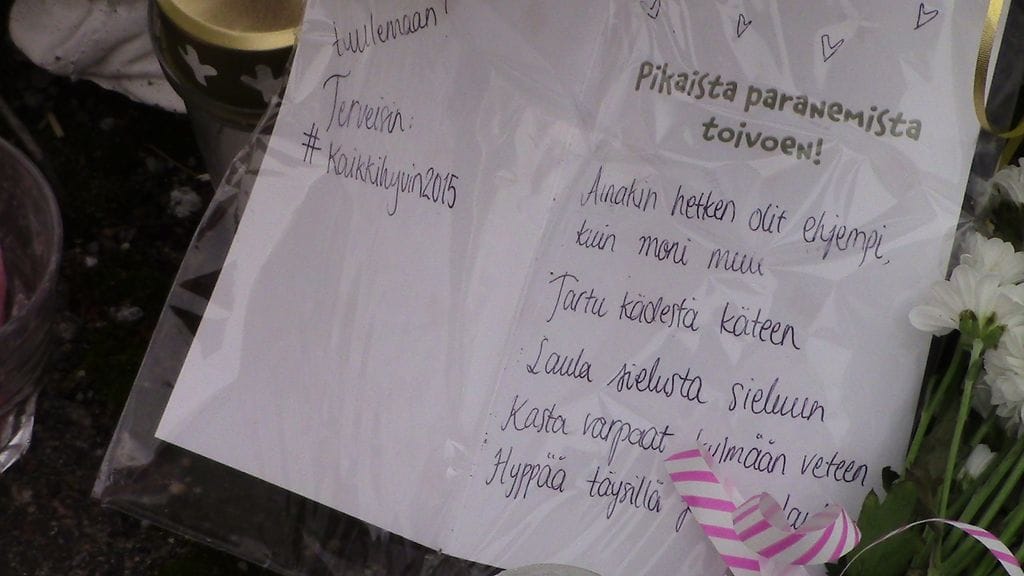 tuulemaan!
Terveisin:
#kaikkihyvin2015
Pikaista paranemista
toivoen!
Ainakin hetken olit ehjempi,
kuin moni muu
Tartu kädestä käteen
Laula sielusta sieluun
Kasta varpaat kylmään veteen
Hyppää täysillä